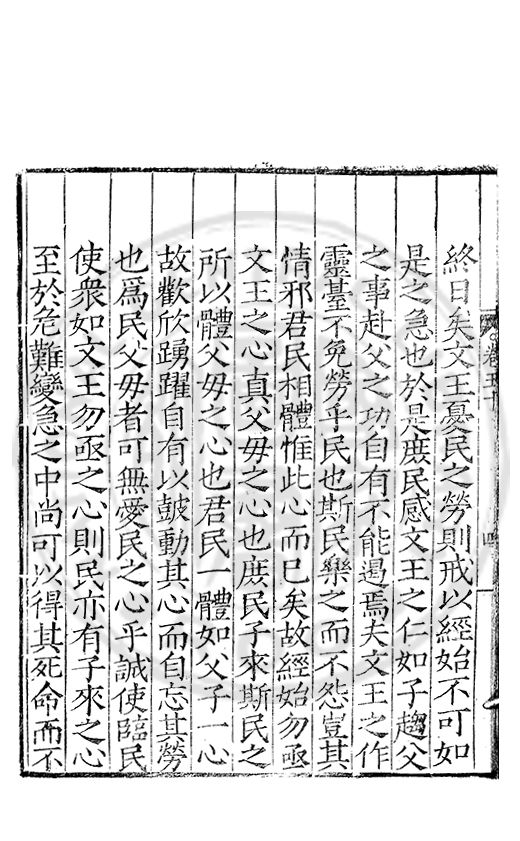 終日矣文王憂民之勞則戒以經始不可如
是之急也於是庶民感文王之仁如子趨父
之事赴父之功自有不能遏焉夫文王之作
靈臺不免勞乎民也斯民樂之而不怨豈其
情邪君民相體惟此心而已矣故經始勿亟
文王之心真父母之心也庶民子來斯民之
所以體父母之心也君民一體如父子一心
故歡欣踴躍自有以鼓動其心而自忘其勞
也爲民父母者可無愛民之心乎誠使臨民
使衆如文王勿亟之心則民亦有子來之心
至於危難變急之中尚可以得其死命而不